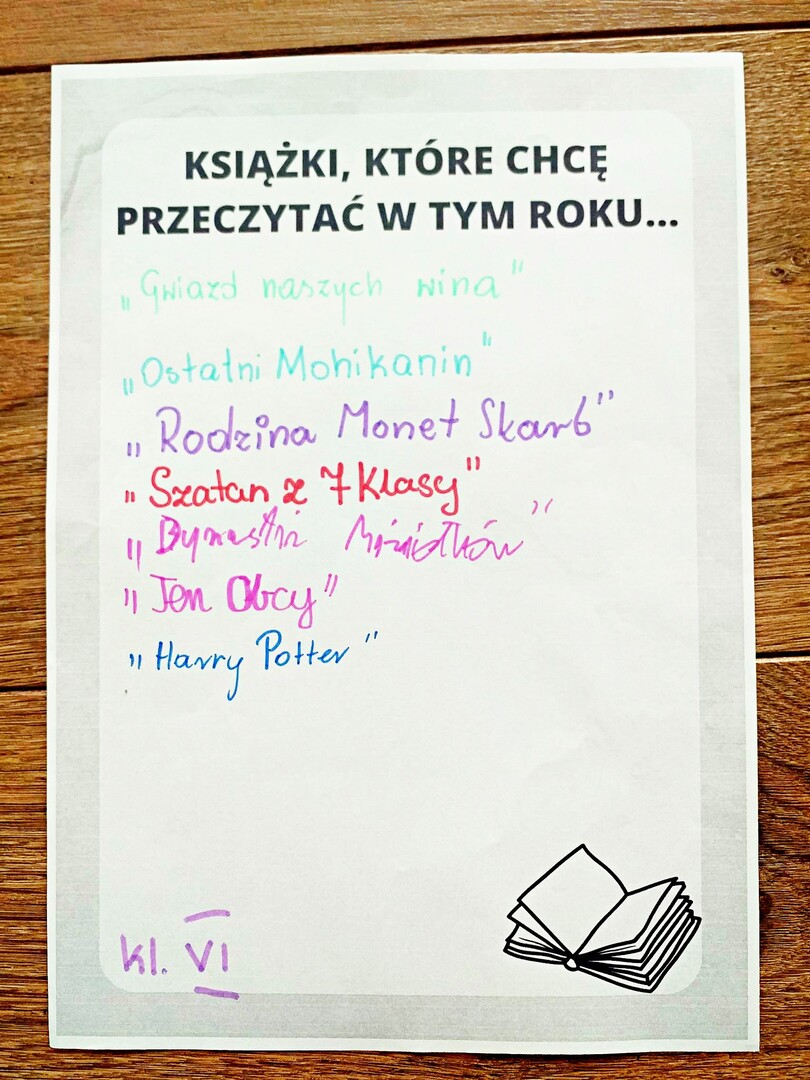 KSIĄŻKI, KTÓRE CHCĘ
PRZECZYTAĆ W TYM ROKU...
„Gwiazd naszych wina"
„Ostatni Mohikanin"
„Rodzina Monet Skarb"
„Szatan z 7 Klasy"
„Dynastia Miziołków"
„Ten Obcy"
„Harry Potter"
kl. VI